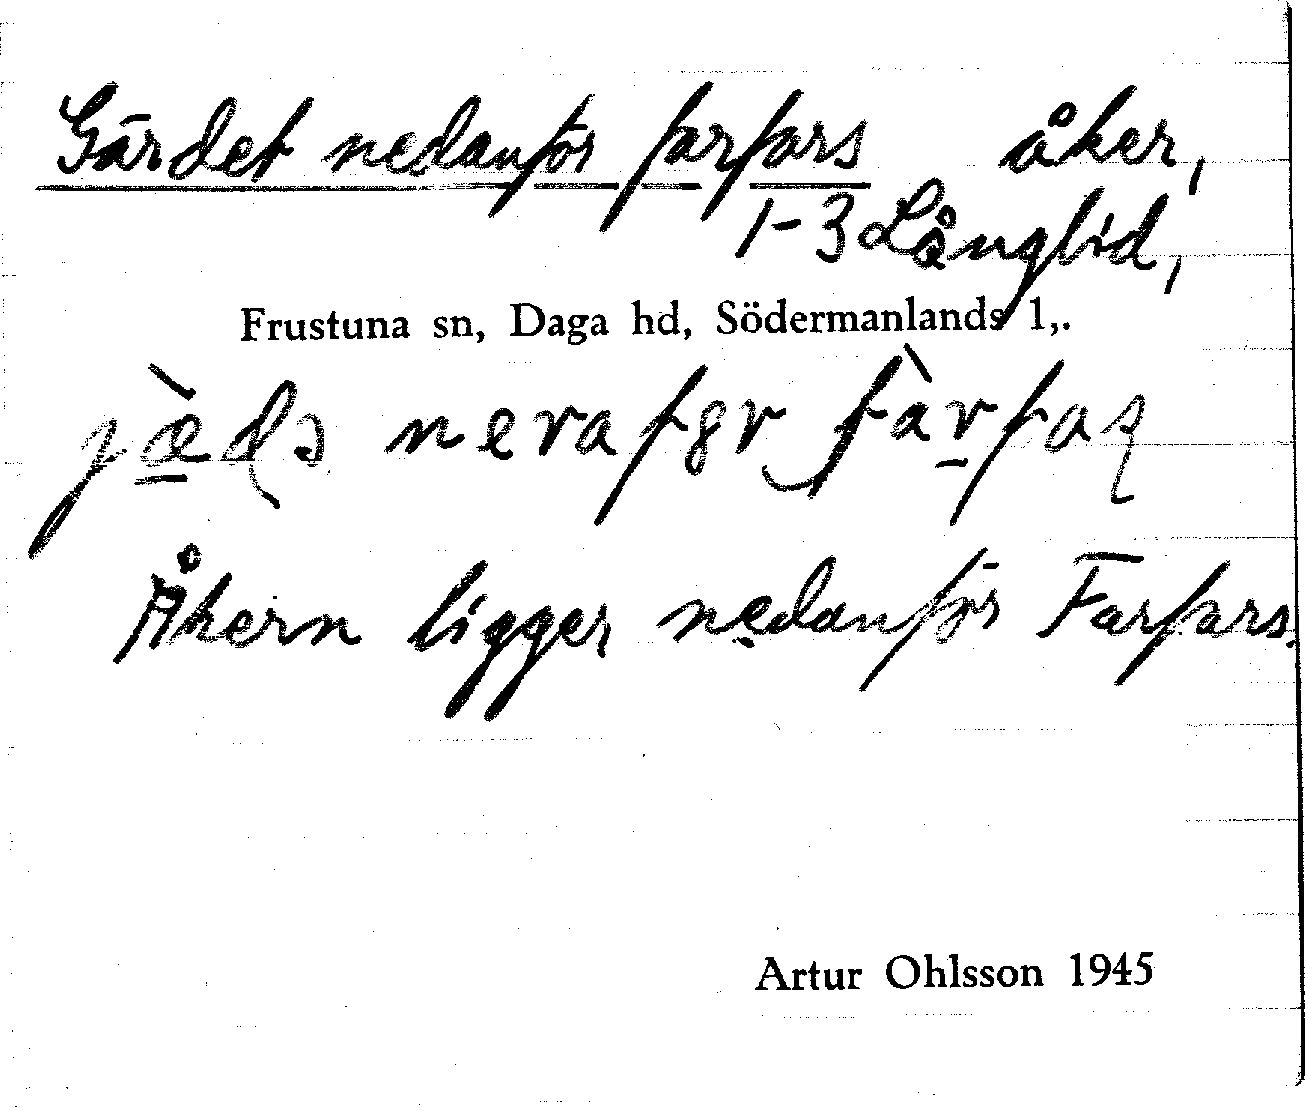 Gärdet nedanför farfars åker,
1-3 Långlid,
Frustuna sn, Daga hd, Södermanlands l,.
nerafɞr fàrfaʂ
Åkern ligger nedanför Farfars.
Artur Ohlsson 1945